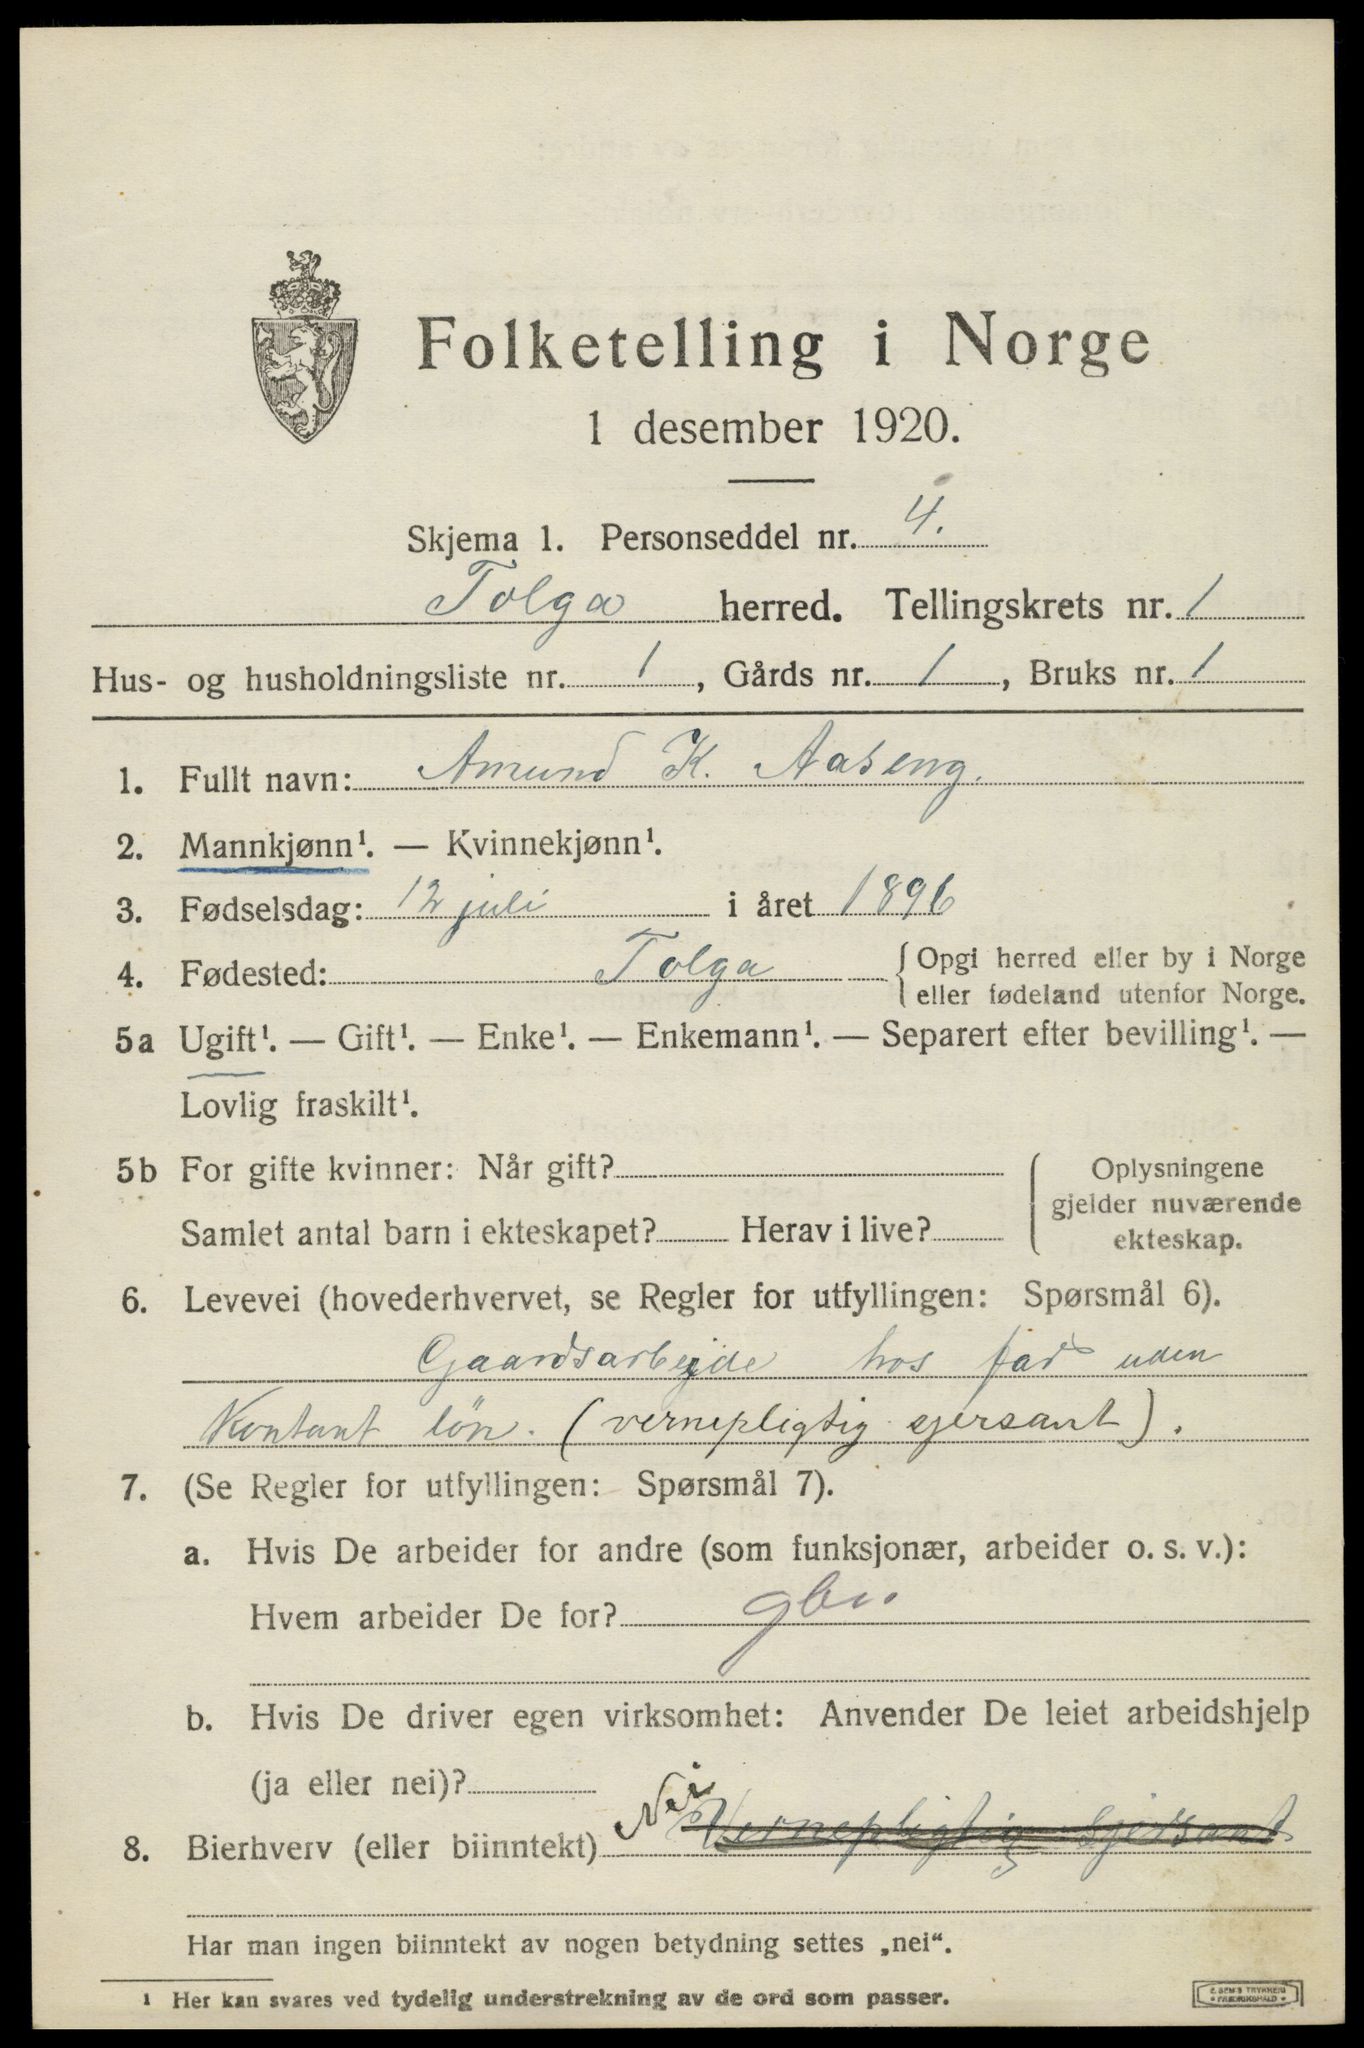 Folketelling i Norge
1 desember 1920.
Skjema 1. Personseddel nr. 4.
Tolga herred. Tellingskrets nr. 1
Hus- og husholdningsliste nr. 1, Gårds nr. 1, Bruks nr. 1
1. Fullt navn: Amund K. Aaseng.
2. Mannkjønn¹. — Kvinnekjønn¹.
3. Fødselsdag: 12 juli i året 1896
4. Fødested: Tolga { Opgi herred eller by i Norge
eller fødeland utenfor Norge.
5a Ugift¹. — Gift¹. — Enke¹. — Enkemann¹. — Separert efter bevilling¹. —
Lovlig fraskilt¹.
5b For gifte kvinner: Når gift?
Samlet antal barn i ekteskapet? Herav i live?
Oplysningene
gjelder nuværende
ekteskap.
6. Levevei (hovederhvervet, se Regler for utfyllingen: Spørsmål 6).
Gaardsarbejde hos far uden
Kontant løn. (vernepligtig sjersant).
7. (Se Regler for utfyllingen: Spørsmål 7).
a. Hvis De arbeider for andre (som funksjonær, arbeider o. s. v.):
Hvem arbeider De for? gbr.
b. Hvis De driver egen virksomhet: Anvender De leiet arbeidshjelp
(ja eller nei)?
8. Bierhverv (eller biinntekt) Nei Vernepligtig Sjersant
Har man ingen biinntekt av nogen betydning settes „nei“.
¹ Her kan svares ved tydelig understrekning av de ord som passer.
E. SEM'S TRYKKERI
FREDRIKSHALD